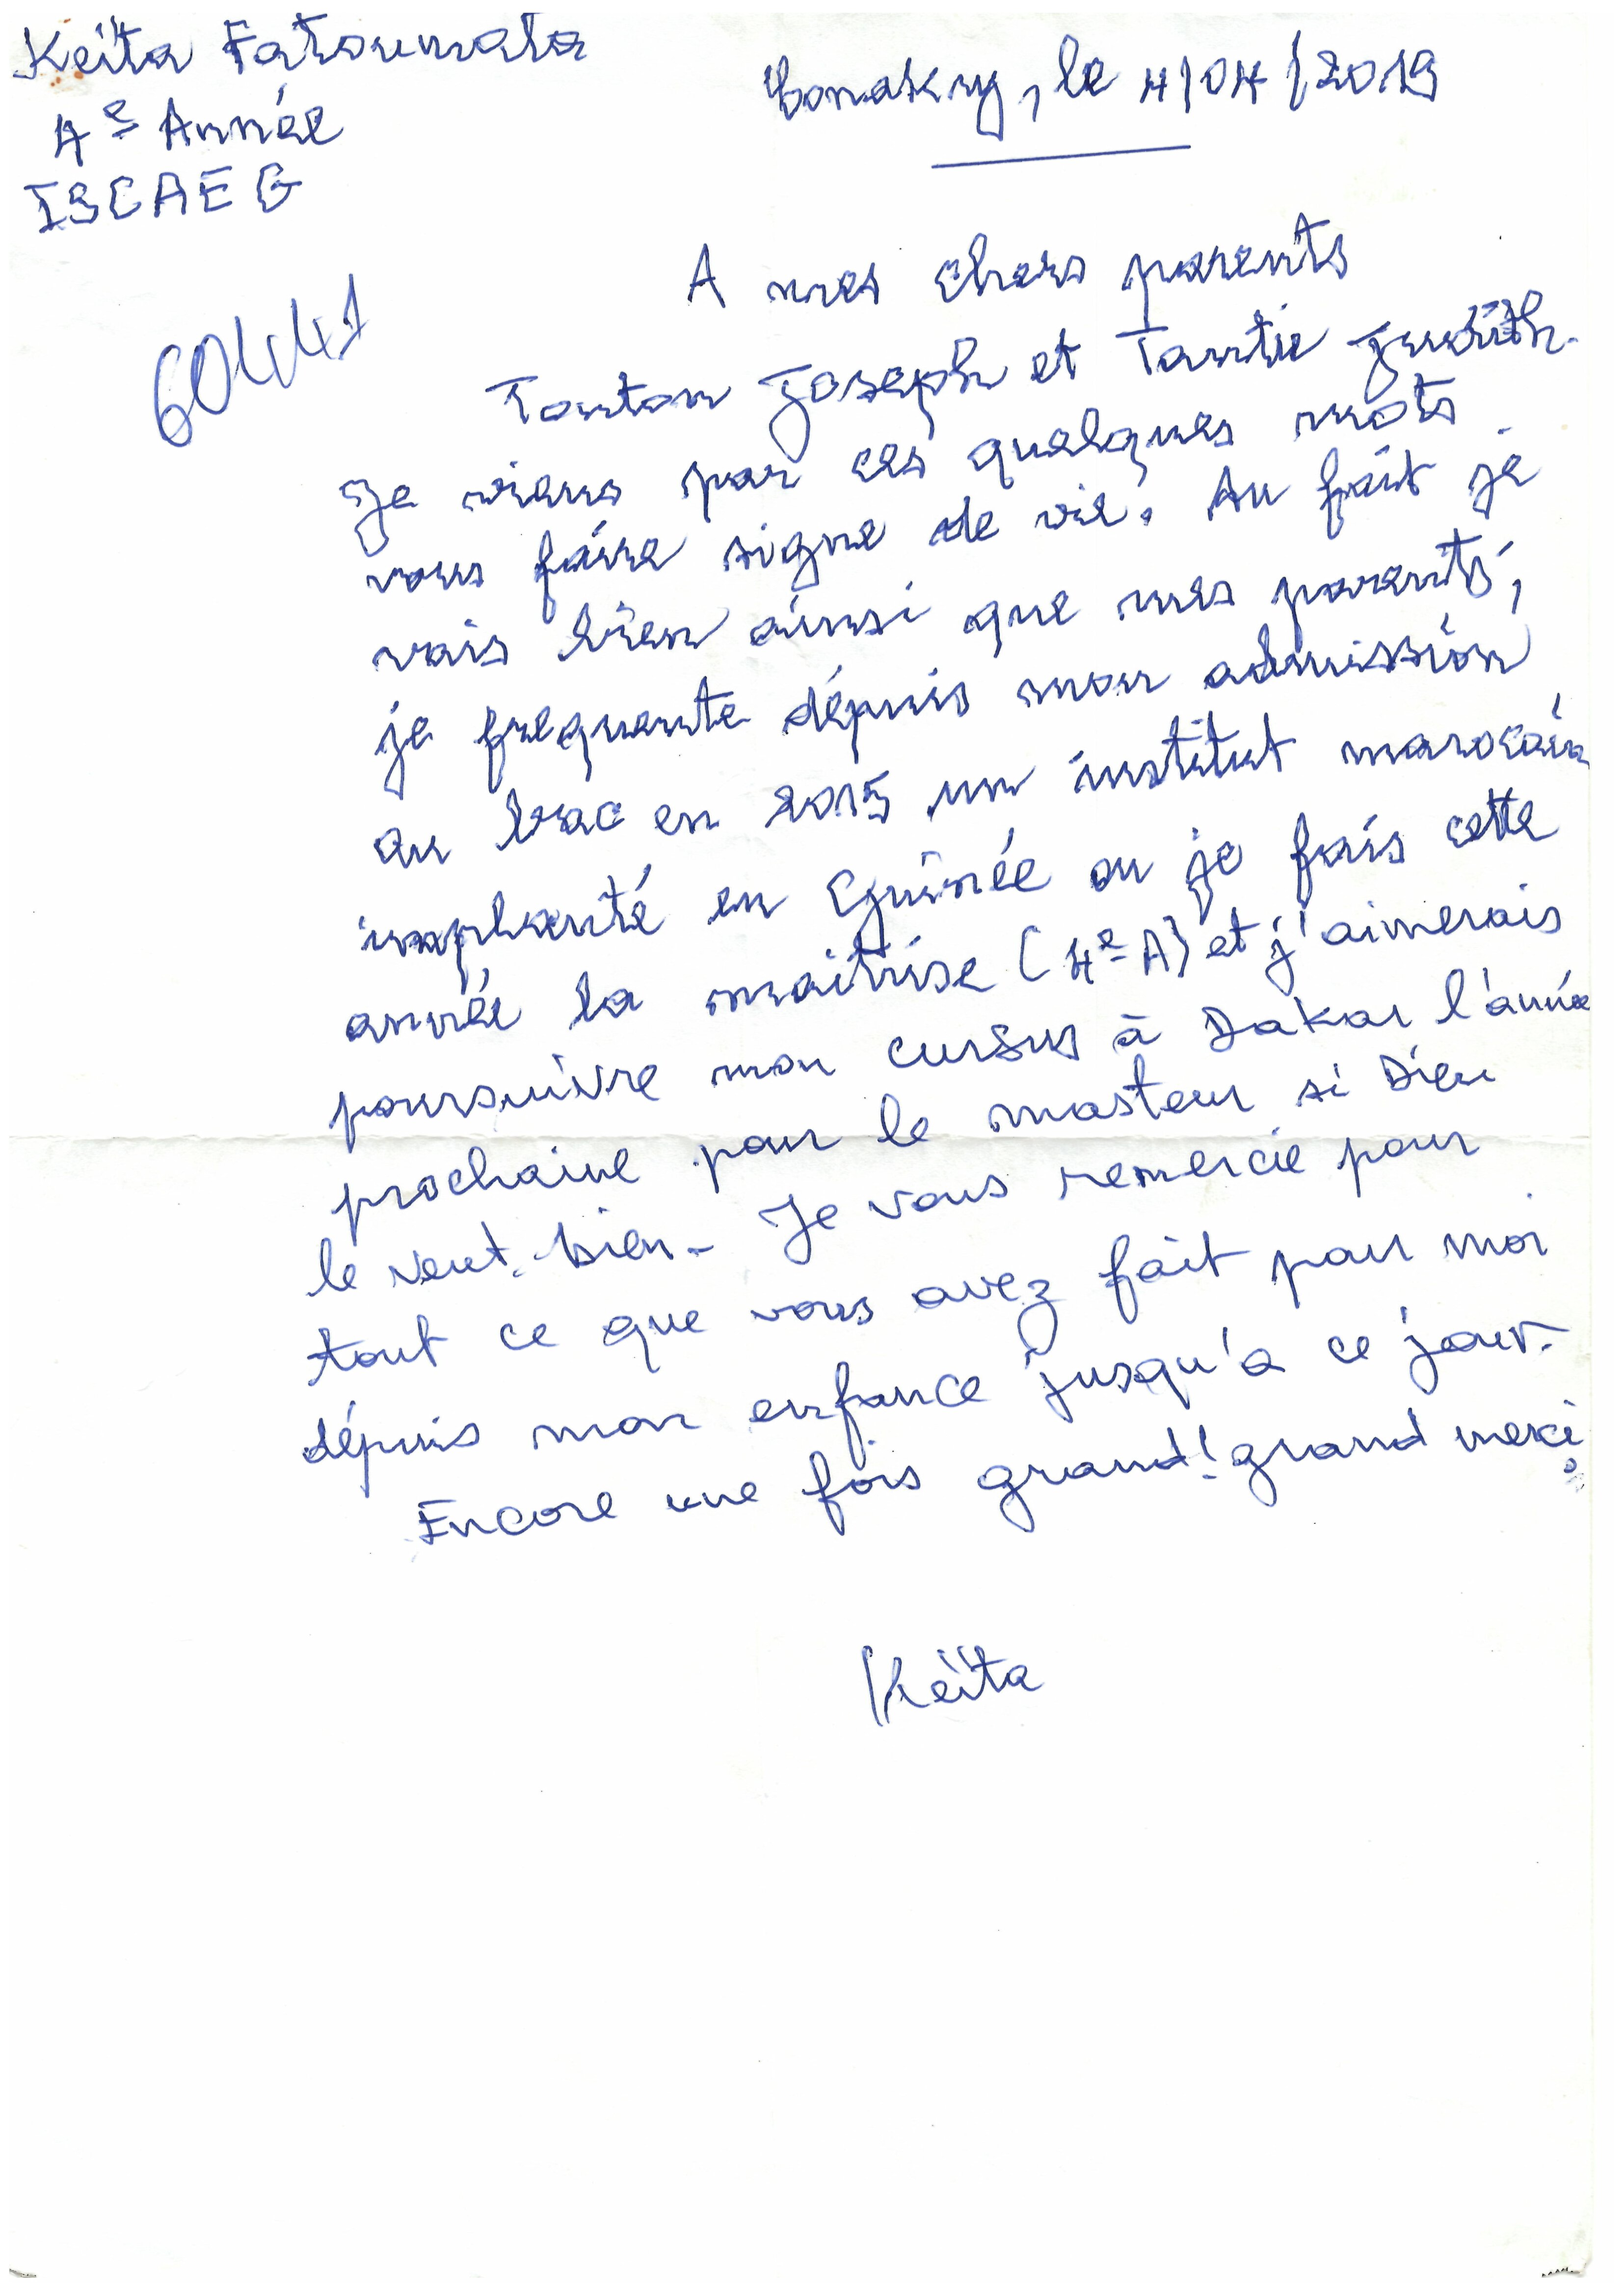 Keïta Fatoumata
Conakry, le 4/04/2019
4e Année
ISCAEG
A mes chers parents
60441
Tonton Joseph et Tantie Judith.
Je viens par ces quelques mots
vous faire signe de vie. Au fait je
vais bien ainsi que mes parents,
je frequente dépuis mon admission
au bac en 2015 un institut marocain
implanté en Guinée ou je fais cette
année la maitrise (4e A) et j'aimerais
poursuivre mon cursus à Dakar l'année
prochaine pour le masteur si Dieu
le veut bien. Je vous remercie pour
tout ce que vous avez fait pour moi
dépuis mon enfance jusqu'a ce jour.
Encore une fois grand! grand merci
Keïta